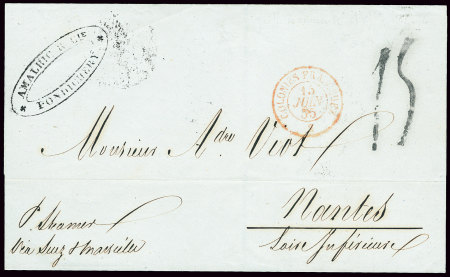 AMALRIC & Cie
PONDICHERY
COLONIES FR
15
JUIN
15
Monsieur Adre Viot
Nantes
Loire Inférieure
P. Steamer
Via Suez & Marseille